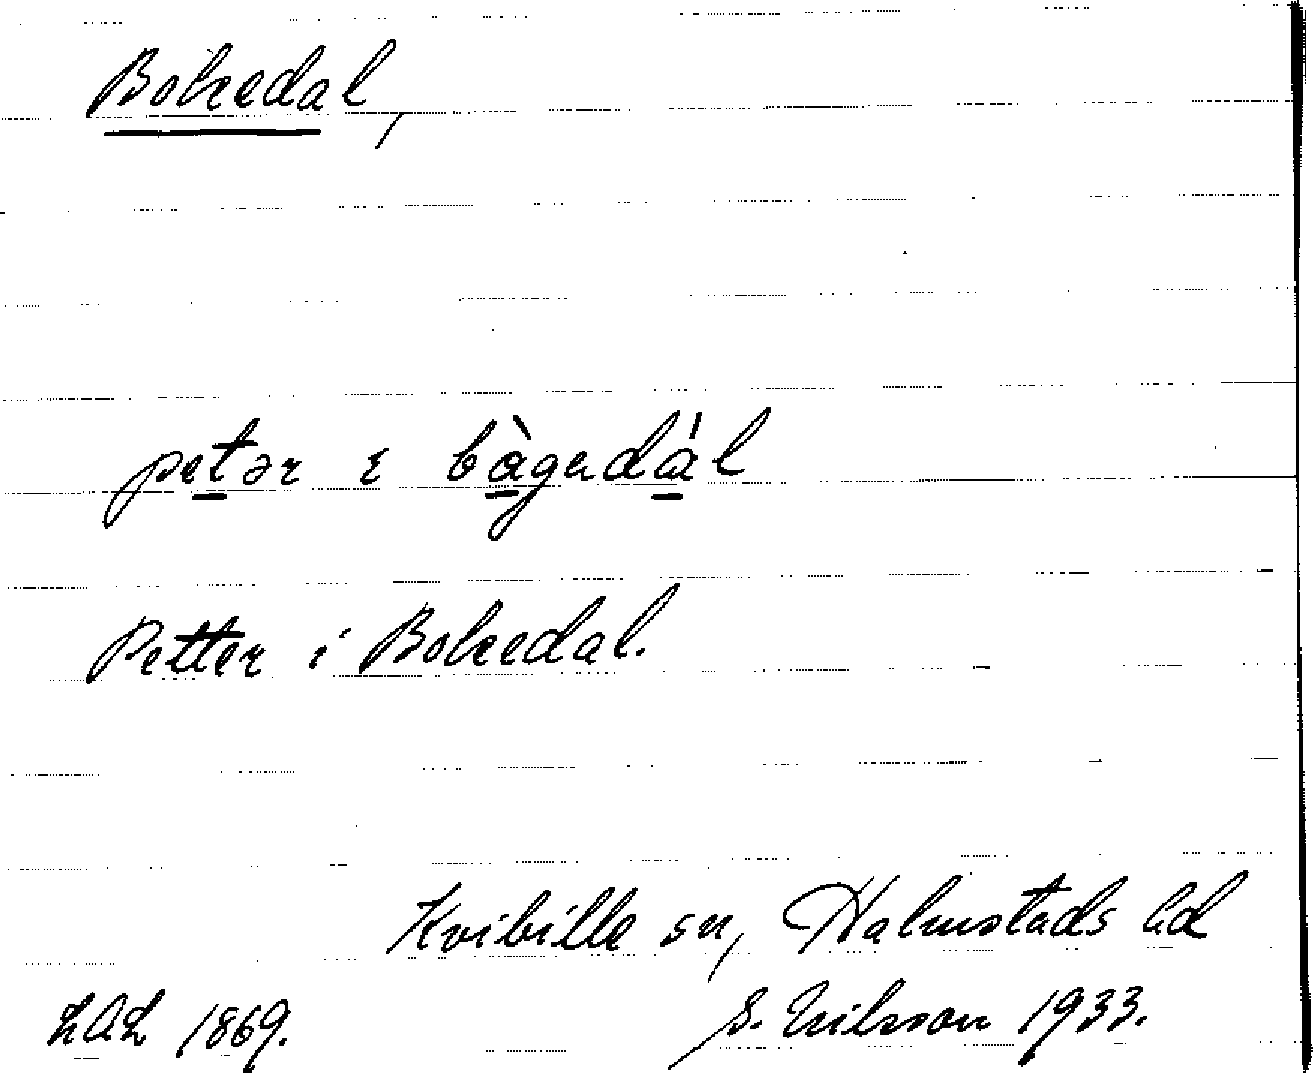 Bokedal,
petər ı bàgedál
Petter i Bokedal.
Kvibille sn, Halmstads hd
LAL 1869.
S. Nilsson 1933.